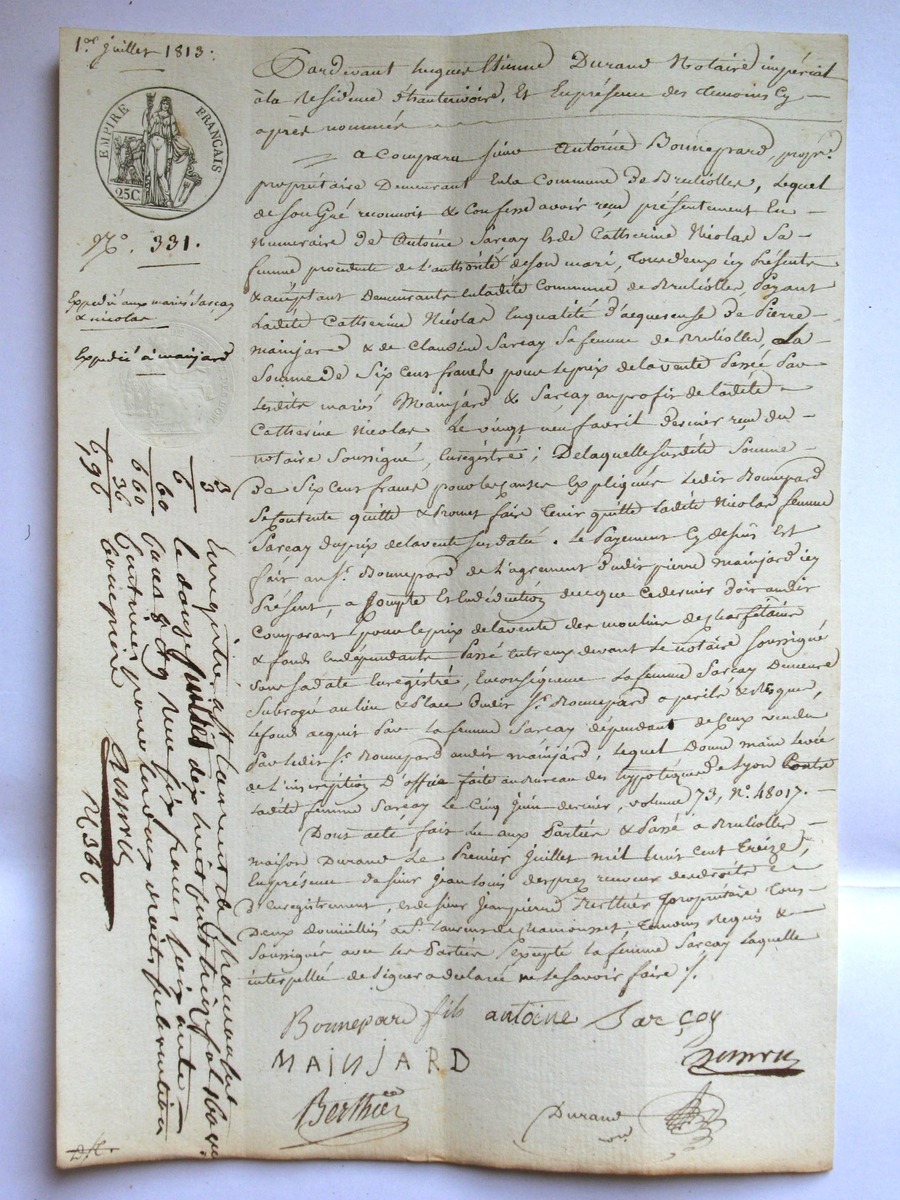 1er juillet 1813.
EMPIRE FRANÇAIS
25C.
N.° 331.
Expedié aux mariés Sarçay
& nicolas
Expedié à mainjard
Pardevant hugues Etienne Durand Notaire impérial
à la Residence, Et En présence des temoins Cy
après nommés
a Comparu sieur Antoine Bonnepard, propre.
propriétaire Demeurant En la Commune de Brulioles, lequel
de son Gré reconnoit & Confesse avoir reçu présentement En
Numeraire de Antoine Sarçay & de Catherine Nicolas Sa
femme procedante de l'authorité de son mari, tous deux icy Présents
& acceptant Demeurants en ladite Commune de Brulioles, Payant
Ladite Catherine Nicolas En qualité d'acquereuse de Pierre
mainjard & de Claudine Sarçay Sa femme de Brulioles, La
Somme de Six Cent francs pour le prix de la vente Passée Par
lesdits mariés Mainjard & Sarçay au profit de ladite
Catherine Nicolas Le vingt neuf avril dernier reçu du
notaire Soussigné, Enregistré; De laquelle Susdite Somme
De Six Cent francs pour les causes Expliquées Ledit Bonnepard
Se Contente quitte & Promet faire tenir quitte Ladite Nicolas femme
Sarçay du prix de la vente Susdatée. Le Payement Cy dessus Est
fait au Sr. Bonnepard de l'agrement dudit pierre mainjard icy
Présent, a Compte Et En déduction de ce que Ce dernier Doit audit
Comparant pour le prix de la vente des moulin de
& fonds En dépendants Passé entr'eux devant le notaire Soussigné
Sous Sa date Enregistré, En conséquence La femme Sarçay Demeure
Subrogé au lieu & Place Dudit Sr. Bonnepard a perils & Risque,
Le fond acquit Par La femme Sarçay dépendant de Ceux vendu
Par Ledit Sr. Bonnepard audit mainjard, Lequel Donne main Levée
de l'inscription D'office faite au Bureau des hypotèques de Lyon Contre
Ladite femme Sarçay Le Cinq Juin dernier, volume 73, N.° 48017.
Dont acte fait Lu aux Parties & Passé a Brulioles
maison Durand Le Premier Juillet mil huit cent Treize,
En présence de Sieur Jean Louis despres receveur des droits
D'enregistrement, & de Sieur Jean pierre Berthier propriétaire Tous
Deux Domiciliés a St. Laurent de chamousset Temoins Requis &
Soussignés avec les Parties Excepté La femme Sarçay Laquelle
interpellée de Signer a déclaré ne le Savoir faire /.
Bonnepard fils antoine Sarçay
MAINJARD
Berthier
Durand
3
3
6
60
660
36
696
Enregistré à St Laurent de chamousset
le douze juillet dix huit cent treize fol 160
Case 8 reçu six francs soixante
Centimes pour
N 366